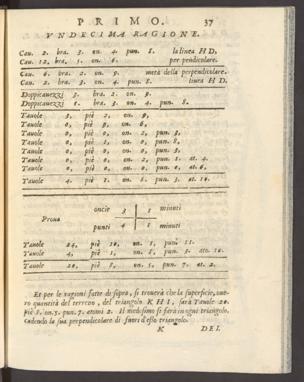 PRIMO. 37
VNDECIMA RAGIONE.
Cau. 2. bra. 3. on. 4. pun. 8. la linea H D,
Cau. 12. bra. 1. on. 6. per pendicolare.
Cau. 6. bra. 2. on. 9. metà della perpendicolare.
Cau. 2. bra. 3. on. 4. pun. 8. linea H D.
Doppicauezzi 3. bra. 2. on. 9.
Doppicauezzi 6. bra. 3. on. 4. pun. 8.
Tauole 3, piè 2, on. 9,
Tauole 0, piè 9, on. 6,
Tauole 0, piè 0, on. 2, pun. 3.
Tauole 0, piè 1, on. 0, pun. 8,
Tauole 0, piè 0, on. 0, pun. 3.
Tauole 0, piè 0, on. 2, pun. 1. at. 4.
Tauole 0, piè 0, on. 0, pun. 0, at. 6,
Tauole 4. piè 1. on. 8. pun. 3. at. 10.
Proua
oncie 3 1 minuti
punti 4 1 minuti
Tauole 24, piè 10, on. 1, pun. 11.
Tauole 4, piè 1, on. 8, pun. 3. ato. 10.
Tauole 20, piè 8, on. 5, pun. 7. at. 2.
Et per le ragioni fatte di sopra, si trouerà che la superficie, ouero
quantità del terreno, del triangolo K H I, sarà Tauole 20.
piè 8. on. 5. pun. 7. atomi 2. Il medesimo si farà in ogni triangolo,
cadendo la sua perpendicolare di fuori d'esso triangolo.
K DEL